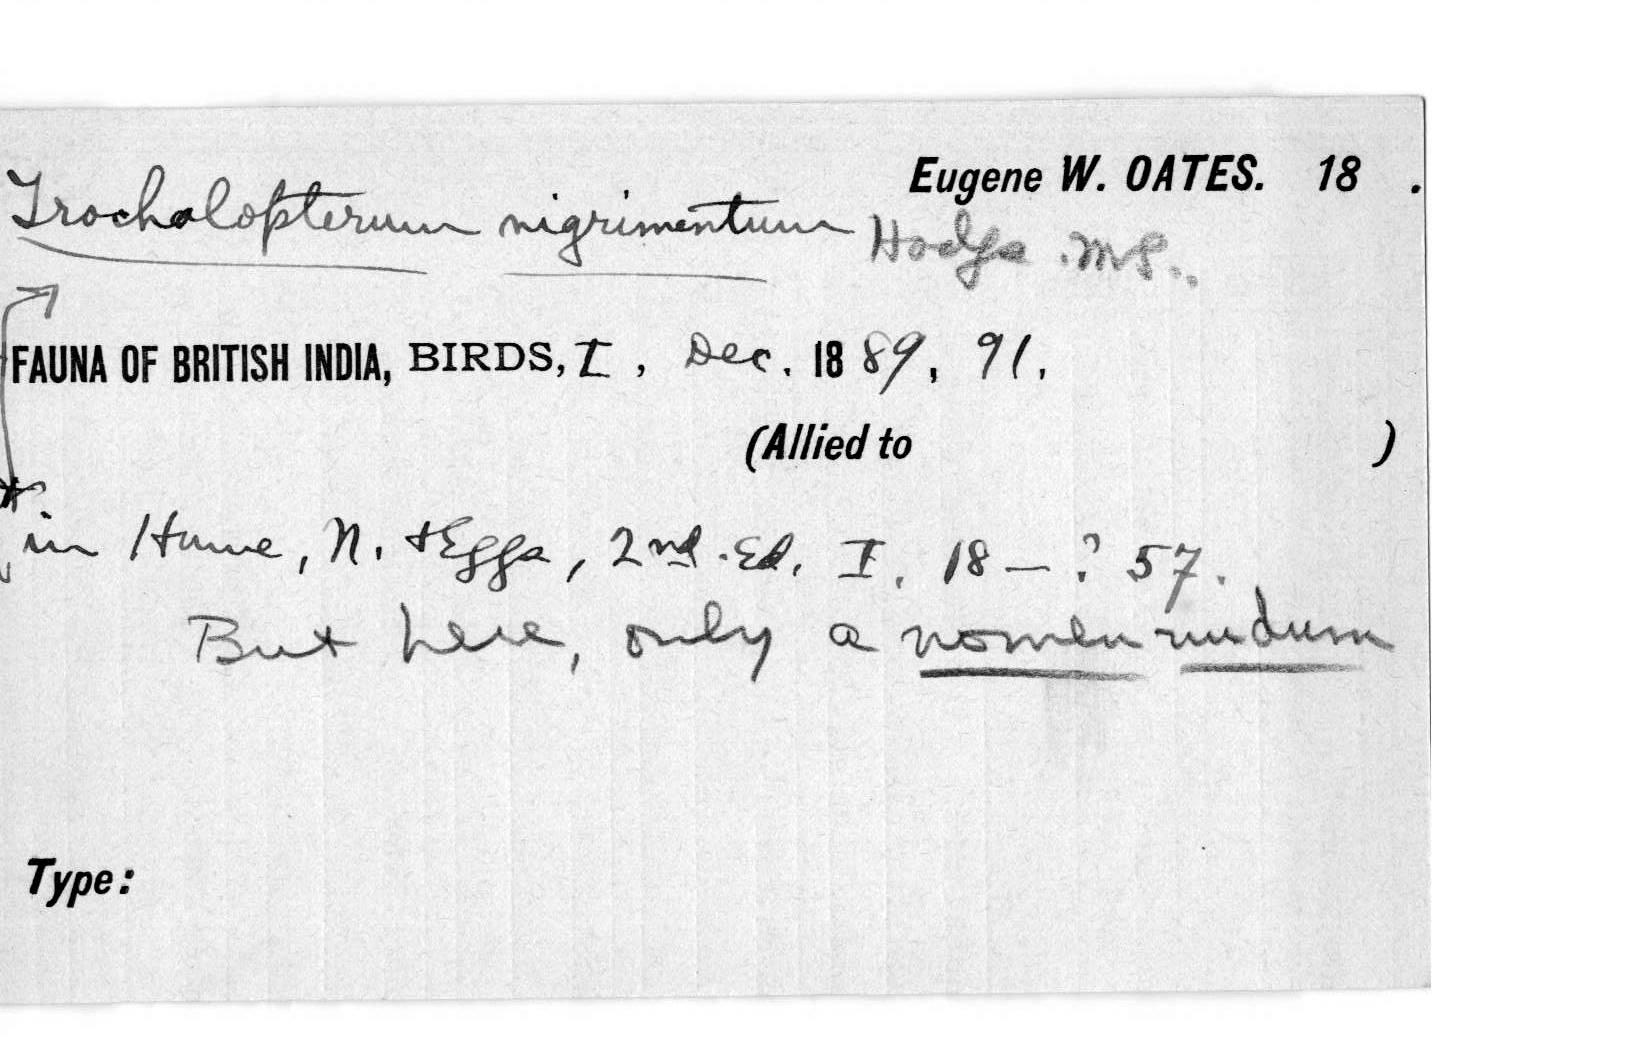 Eugene W. OATES. 18 .
Trochalopterum nigrimentum Hodgs. MS..
FAUNA OF BRITISH INDIA, BIRDS, I, Dec. 1889, 91.
(Allied to )
*in Hume, N. + Eggs, 2nd. Ed. I. 18 — ? 57.
But here, only a nomen nudum
Type: